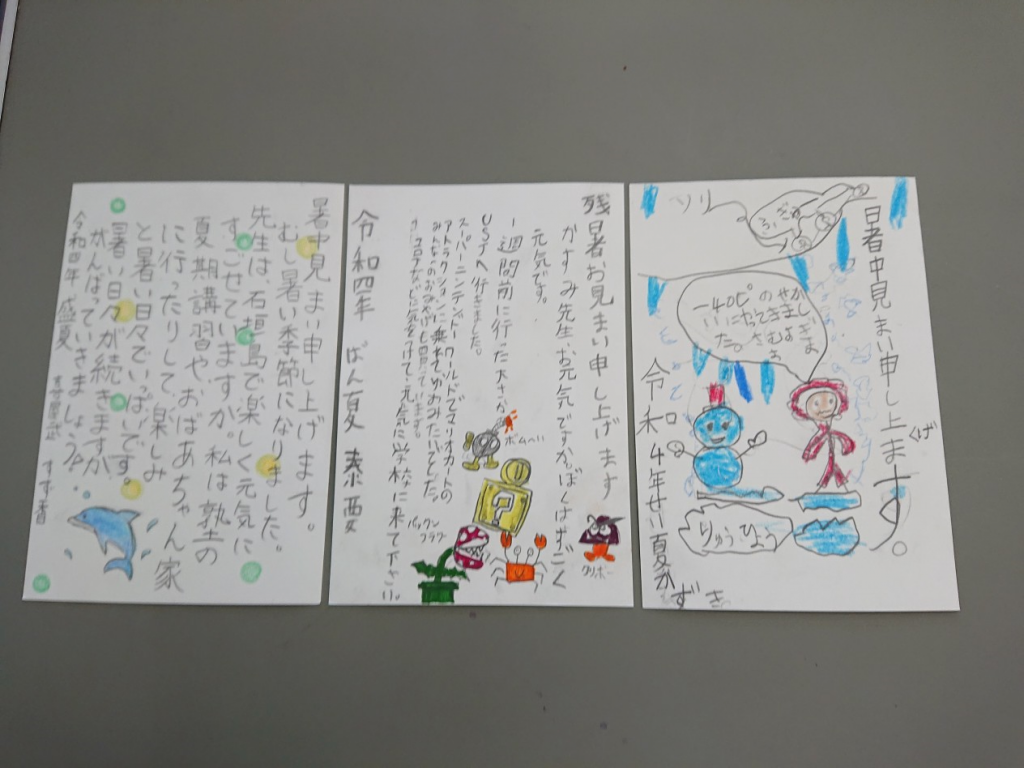 暑中見まい申し上げます。
むし暑い季節になりました。
先生は、石垣島で楽しく元気に
すごせていますか。私は塾の
夏期講習や、おばあちゃん家
に行ったりして、楽しみ
と暑い日々でいっぱいです。
暑い日々が続きますが、
がんばっていきましょうね。
令和四年 盛夏
すず香
残暑お見まい申し上げます
かすみ先生、お元気ですか。ぼくはすごく
元気です。
一週間前に行った大さか
USJへ行きました。
スーパーニンテンドーワールドでマリオカートの
アトラクションに乗れてゆめみたいでした。
コロナに気をつけて元気に学校に来て下さい。
令和四年 ばん夏
ボムへい
パックン
フラワー
クリボー
暑中見まい申し上ます。
げ
ソリ
-40℃の
りゅうひょう
令和4年せい夏かずき